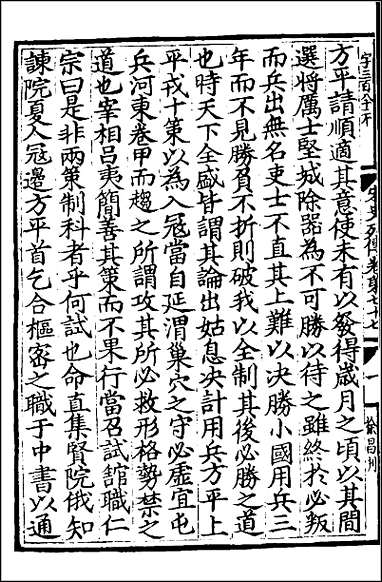 方平請順適其意使未有以發得歲月之頃以其間
選將厲士堅城除器為不可勝以待之雖終於必叛
而兵出無名吏士不直其上難以決勝小國用兵三
年而不見勝負不折則破我以全制其後必勝之道
也時天下全盛皆謂其論出姑息决計用兵方平上
平戎十策以為入冦當自延渭巢穴之守必虛宜屯
兵河東卷甲而趨之所謂攻其所必救形格勢禁之
道也宰相吕夷簡善其策而不果行當召試館職仁
宗曰是非兩策制科者乎何試也命直集賢院俄知
諫院夏人冦邊方平首乞合樞密之職于中書以通
宋史列傳卷第七十七
一